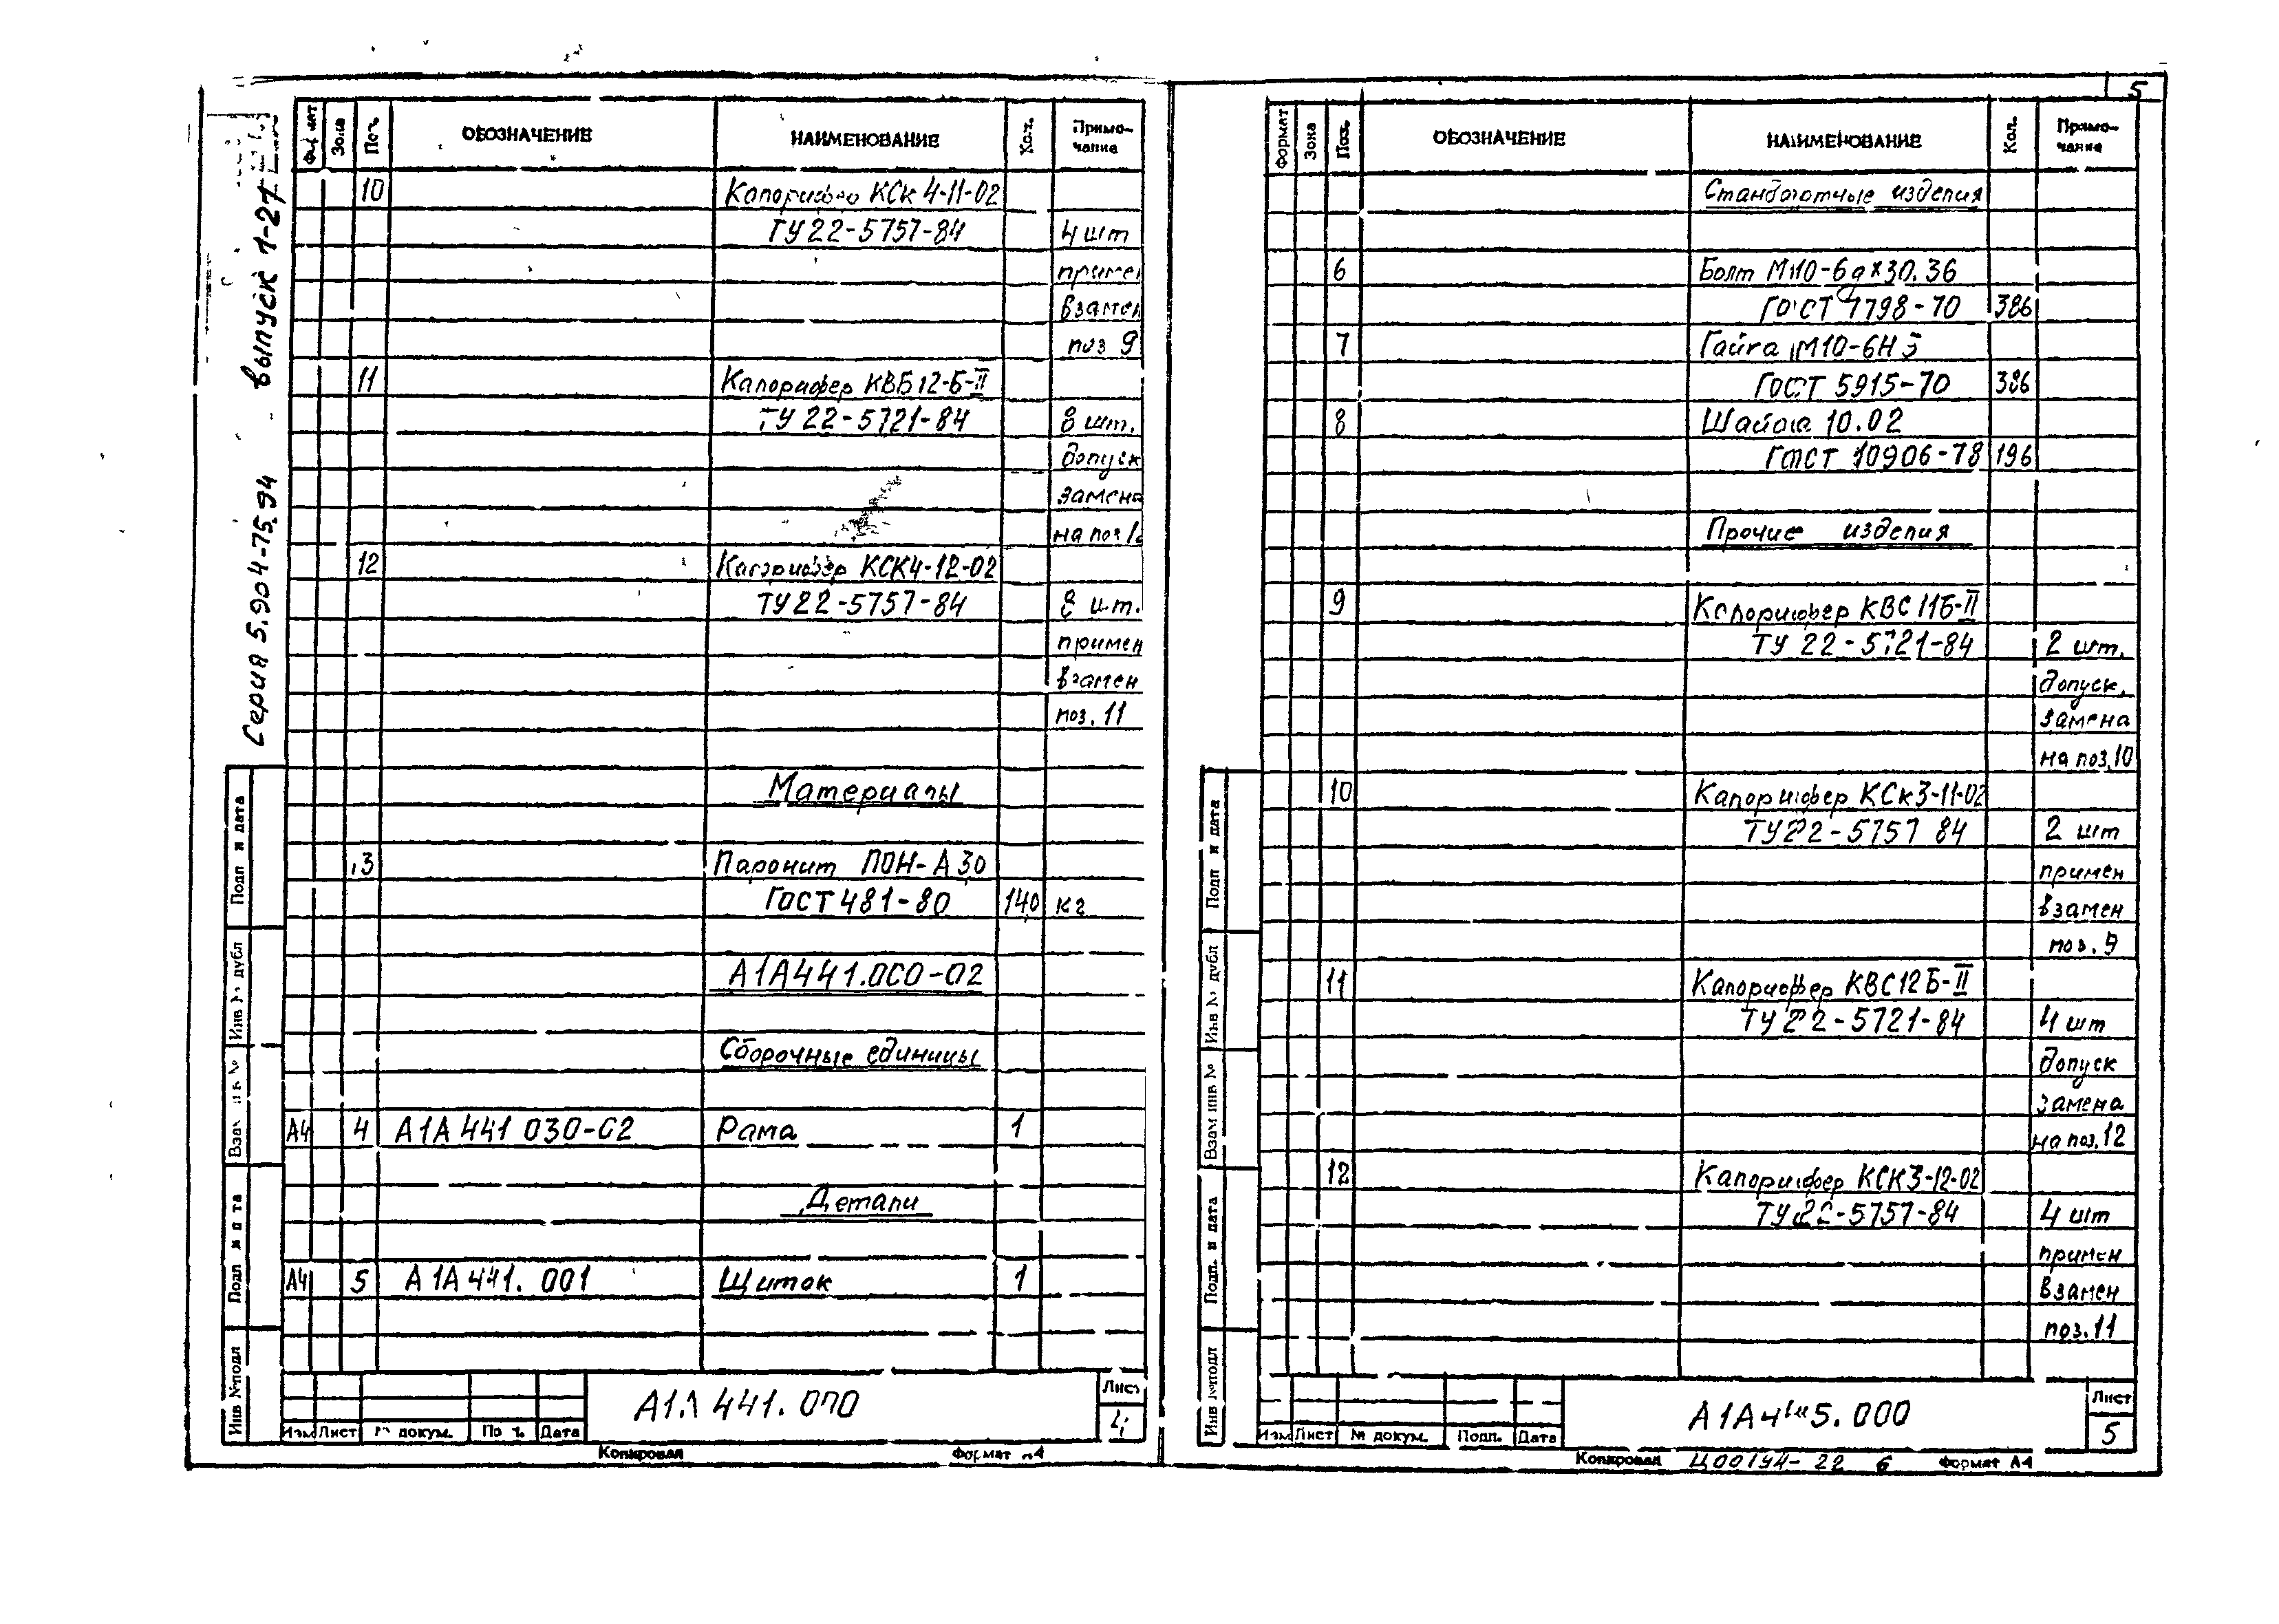 5
Серия 5.904-75.94 выпуск 1-21
Зона
ОБОЗНАЧЕНИЕ
НАИМЕНОВАНИЕ
Кол.
Приме-
чание
10 Калорифер КСк 4-11-02
ТУ 22-5757-84 4 шт
примен
взамен
поз 9
11 Калорифер КВБ 12-Б-II
ТУ 22-5721-84 8 шт.
допуск
замена
на поз 12
12 Калорифер КСК4-12-02
ТУ 22-5757-84 8 шт.
примен
взамен
поз. 11
Материалы
13 Паронит ПОН-А 30
ГОСТ 481-80 140 кг
А1А441.000-02
Сборочные единицы
А4 4 А1А 441 030-02 Рама 1
Детали
А4 5 А1А 441. 001 Щиток 1
Подп и дата
Инв № дубл
Взам инв №
Подп и дата
Инв № подл
Изм Лист № докум. Подп. Дата
А1А 441. 000
Лист
4
Копировал
Формат А4
Формат
Зона
Поз.
ОБОЗНАЧЕНИЕ
НАИМЕНОВАНИЕ
Кол.
Приме-
чание
Стандартные изделия
6 Болт М10-6gх30.36
ГОСТ 7798-70 386
7 Гайка М10-6Н 5
ГОСТ 5915-70 386
8 Шайба 10.02
ГОСТ 10906-78 196
Прочие изделия
9 Калорифер КВС 11Б-II
ТУ 22-5721-84 2 шт.
допуск.
замена
на поз.10
10 Калорифер КСк3-11-02
ТУ22-5757 84 2 шт
примен
взамен
поз. 9
11 Калорифер КВС12Б-II
ТУ 22-5721-84 4 шт
допуск
замена
на поз. 12
12 Калорифер КСК3-12-02
ТУ22-5757-84 4 шт
примен
взамен
поз. 11
Подп и дата
Инв № дубл
Взам инв №
Подп. и дата
Инв № подл
Изм Лист № докум. Подп. Дата
Лист
5
Копировал
22 6
Формат А4